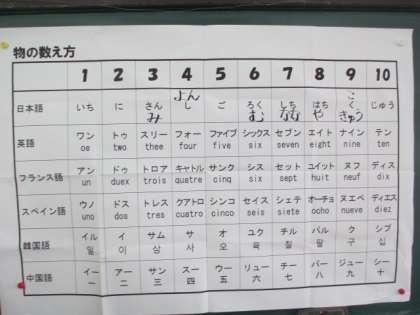 物の数え方
1 2 3 4 5 6 7 8 9 10
よん こ
日本語 いち に さん し ご ろく しち はち く じゅう
み む なな や きゅう
英語 ワン トゥ スリー フォー ファイブ シックス セブン エイト ナイン テン
oe two three four five six seven eight nine ten
フランス語 アン ドゥ トロア キャトル サンク シス セット ユイット ヌフ ディス
un duex trois quatre cinq six sept huit neuf dix
スペイン語 ウノ ドス トレス クアトロ シンコ セイス シェテ オーチョ ヌエベ ディエス
uno dos tres cuatro cinco seis siete ocho nueve diez
韓国語 イル イ サム サ オ ユク チル パル ク シプ
일 이 삼 사 오 육 칠 팔 구 십
中国語 イー アー サン スー ウー リュー チー バー ジュー シー
一 二 三 四 五 六 七 八 九 十